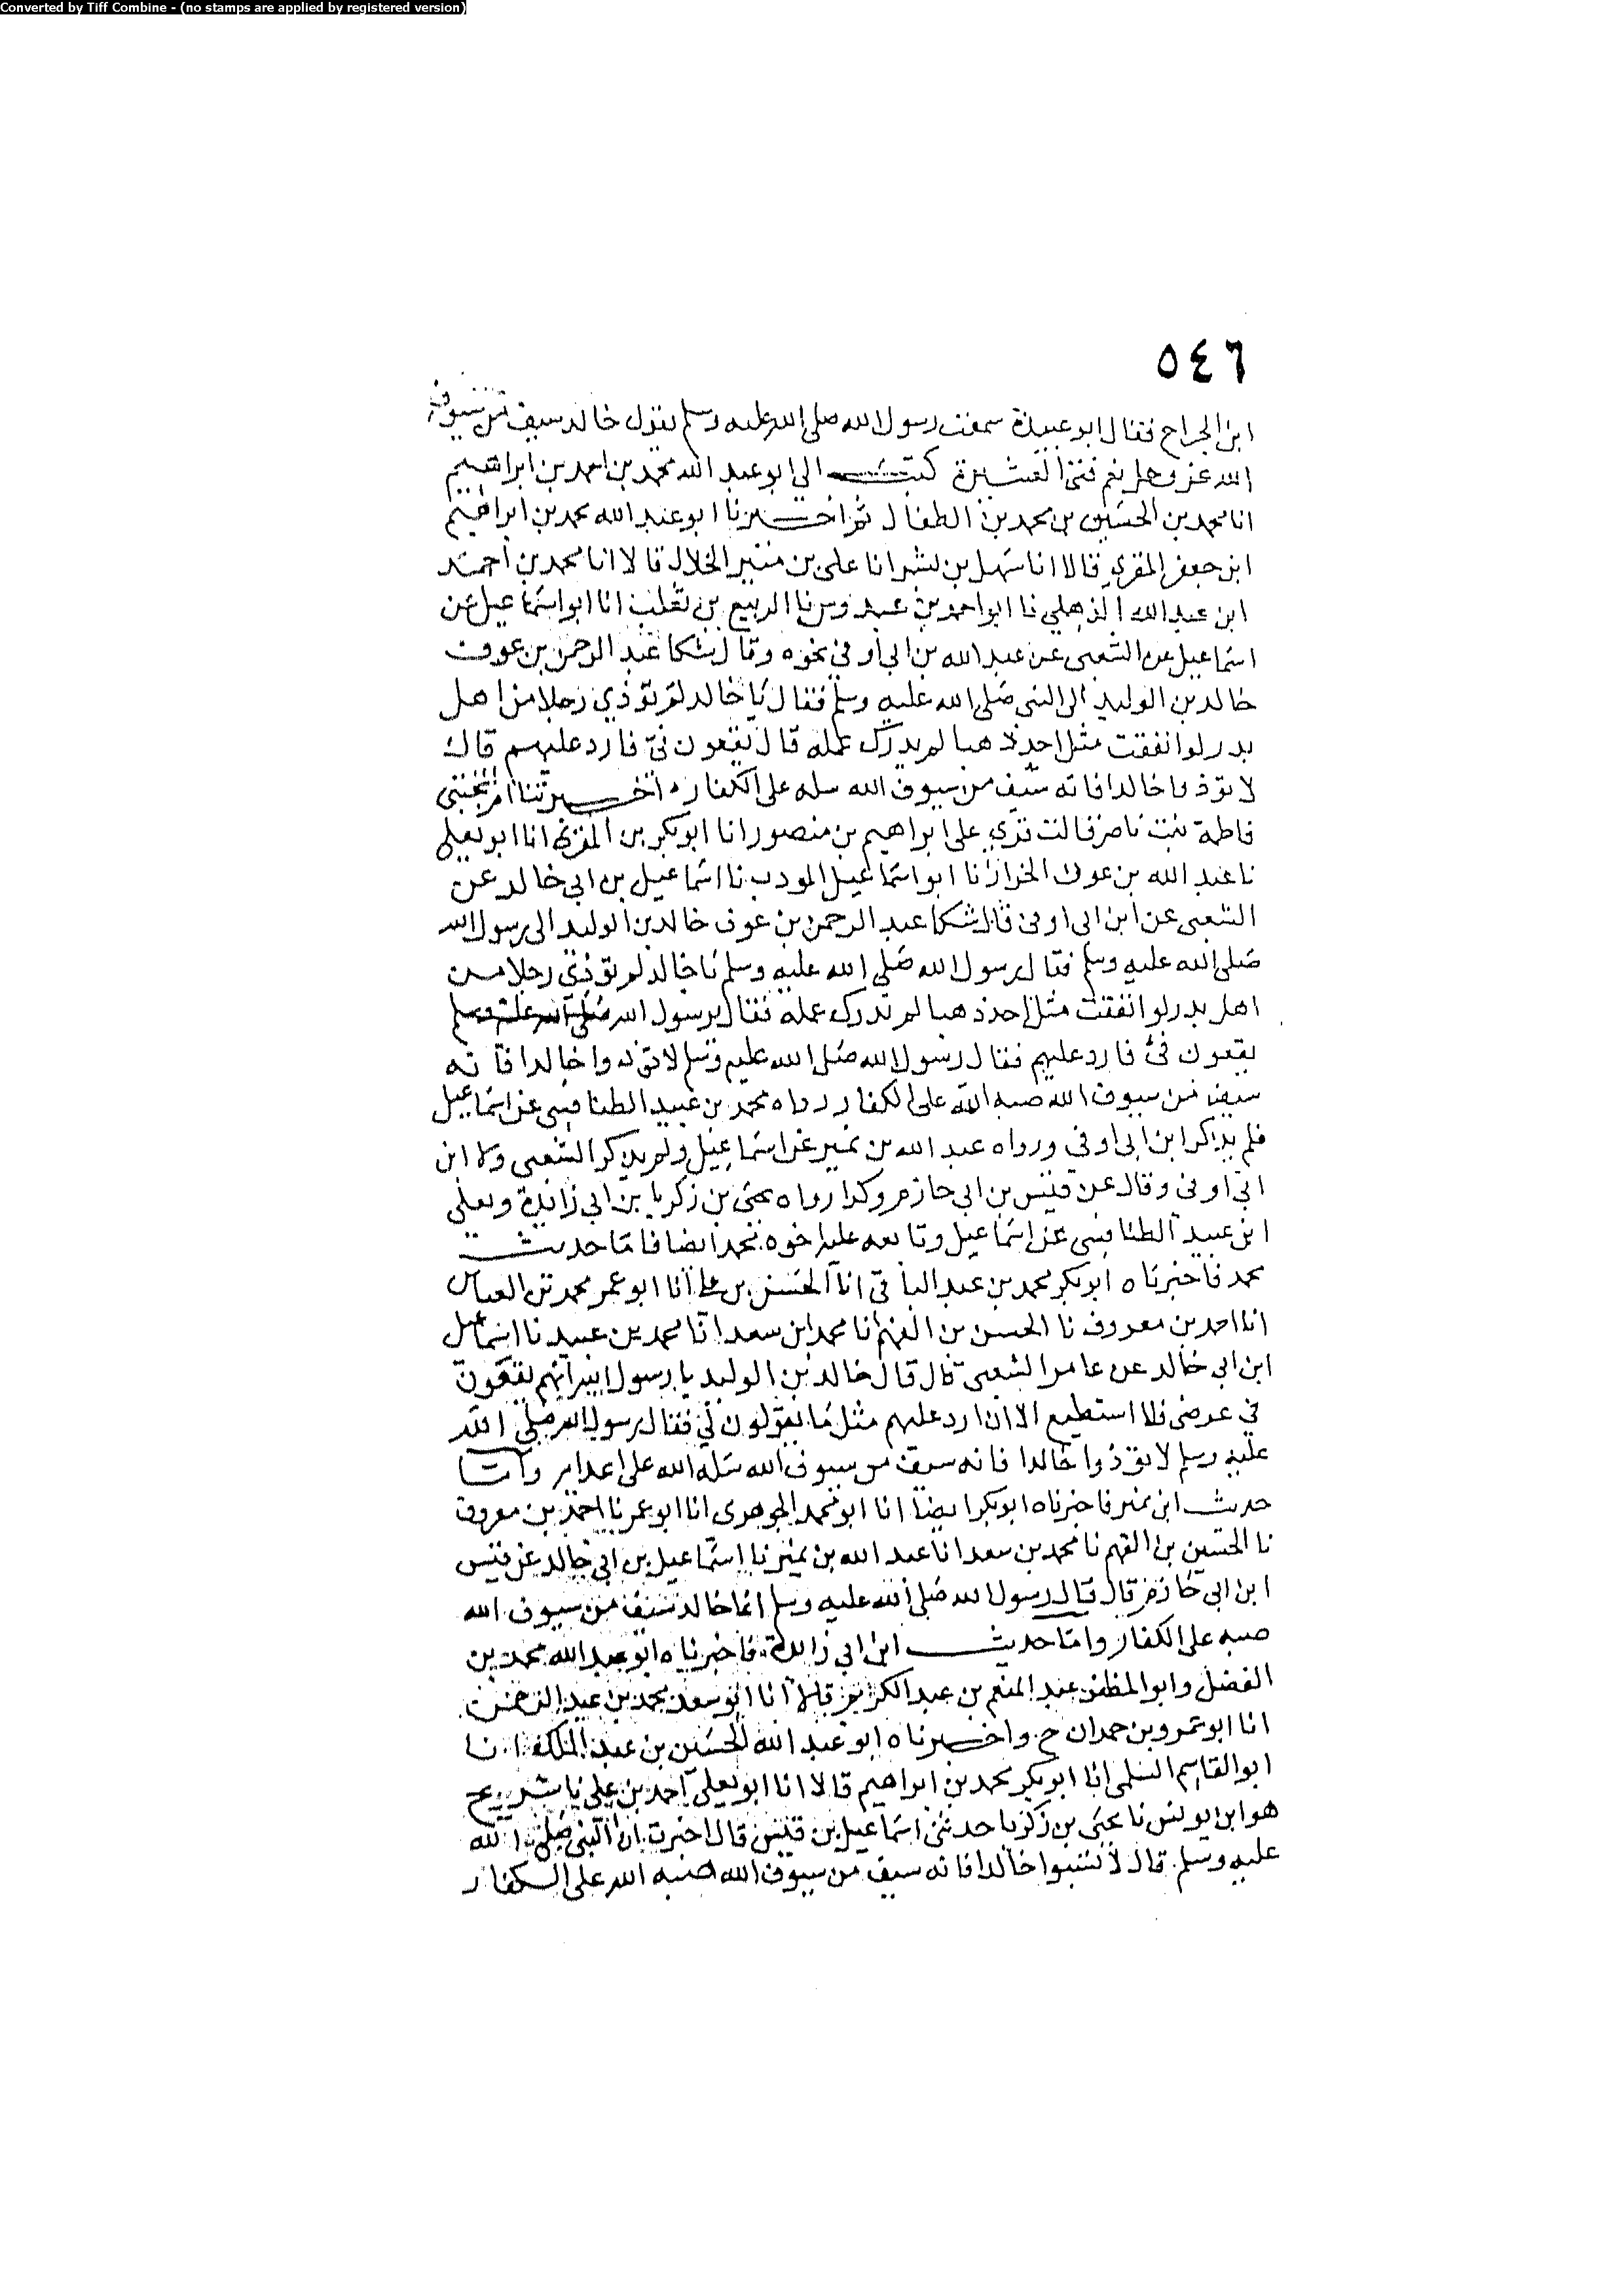 Converted by Tiff Combine - (no stamps are applied by registered version)
٥٤٦
ابن الجراح فقال ابو عبيدة سمعت رسول الله صلى الله عليه وسلم يقول خالد سيف من سيوف
الله عز وجل نعم فتى العشيرة كتب الي ابو عبد الله محمد بن احمد بن ابراهيم
انا محمد بن الحسين بن محمد بن الطفال ثم اخبرنا ابو عبد الله محمد بن ابراهيم
ابن جعفر المقري قالا انا سهل بن بشر انا علي بن منير الخلال قالا انا محمد بن احمد
ابن عبد الله الذهلي نا ابو احمد بن عبدوس نا الربيع بن ثعلب انا ابو اسماعيل عن
اسماعيل عن الشعبي عن عبد الله بن ابي اوفى نحوه وقال شكا عبد الرحمن بن عوف
خالد بن الوليد الى النبي صلى الله عليه وسلم فقال يا خالد لم تؤذي رجلا من اهل
بدر لو انفقت مثل احد ذهبا لم يدرك عمله قال يقعون في فارد عليهم قال
لا تؤذوا خالدا فانه سيف من سيوف الله سله على الكفار اخبرتنا ام المجتبى
فاطمة بنت ناصر قالت قرئ على ابراهيم بن منصور انا ابو بكر بن المقرئ انا ابو يعلى
نا عبد الله بن عون الخراز نا ابو اسماعيل المودب نا اسماعيل بن ابي خالد عن
الشعبي عن ابن ابي اوفى قال شكا عبد الرحمن بن عوف خالد بن الوليد الى رسول الله
صلى الله عليه وسلم فقال رسول الله صلى الله عليه وسلم يا خالد لم تؤذي رجلا من
اهل بدر لو انفقت مثل احد ذهبا لم تدرك عمله فقال يرسول الله صلى الله عليه وسلم
يقعون في فارد عليهم فقال رسول الله صلى الله عليه وسلم لا تؤذوا خالدا فانه
سيف من سيوف الله صبه الله على الكفار رواه محمد بن عبيد الطنافسي عن اسماعيل
فلم يذكر ابن ابي اوفى ورواه عبد الله بن نمير عن اسماعيل ولم يذكر الشعبي ولا ابن
ابي اوفى وقال عن قيس بن ابي حازم وكذا رواه يحيى بن زكريا بن ابي زائدة ويعلى
ابن عبيد الطنافسي عن اسماعيل وتابعه عليه اخوه محمد ايضا فاما حديث
محمد فاخبرناه ابو بكر محمد بن عبد الباقي انا الحسن بن علي انا ابو عمر محمد بن العباس
انا احمد بن معروف نا الحسين بن الفهم انا محمد ابن سعد انا محمد بن عبيد نا اسماعيل
ابن ابي خالد عن عامر الشعبي قال قال خالد بن الوليد يا رسول الله انهم يقعون
في عرضي فلا استطيع الا ان ارد عليهم مثل ما يقولون لي فقال رسول الله صلى الله
عليه وسلم لا تؤذوا خالدا فانه سيف من سيوف الله سله الله على اعدايه واما
حديث ابن نمير فاخبرناه ابو بكر ايضا انا ابو محمد الجوهري انا ابو عمر نا احمد بن معروف
نا الحسين بن الفهم نا محمد بن سعد انا عبد الله بن نمير نا اسماعيل بن ابي خالد عن قيس
ابن ابي حازم قال قال رسول الله صلى الله عليه وسلم انما خالد سيف من سيوف الله
صبه على الكفار واما حديث ابن ابي زائدة فاخبرناه ابو عبد الله محمد بن
الفضل وابو المظفر عبد المنعم بن عبد الكريم قالا انا ابو سعد محمد بن عبد الرحمن
انا ابو عمرو بن حمدان ح واخبرناه ابو عبد الله الحسين بن عبد الملك انا
ابو القاسم السلمي انا ابو بكر محمد بن ابراهيم قالا انا ابو يعلى احمد بن علي نا شريح
هو ابن يونس نا يحيى بن زكريا حدثني اسماعيل بن قيس قال اخبرت ان النبي صلى الله
عليه وسلم قال لا تسبوا خالدا فانه سيف من سيوف الله صبه الله على الكفار